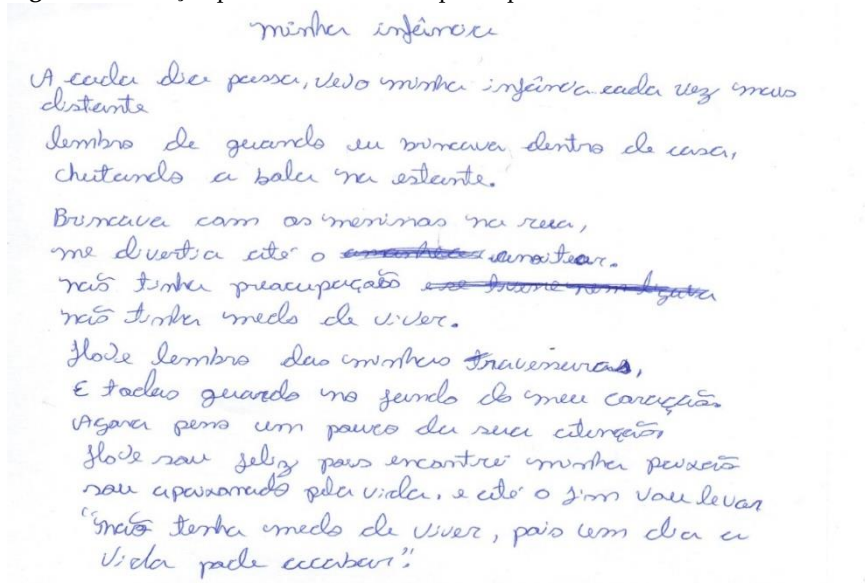 minha infância
A cada dia passa, vejo minha infância cada vez mais
distante
lembro de quando eu brincava dentro de casa,
chutando a bola na estante.
Brincava com os meninos na rua,
me divertia até o anoitecer.
não tinha preocupação
não tinha medo de viver.
Hoje lembro das minhas travessuras,
E todas guardo no fundo do meu coração
Agora peço um pouco da sua atenção,
Hoje sou feliz pois encontrei minha paixão
sou apaixonado pela vida, e até o fim vou levar
"não tenha medo de viver, pois um dia a
vida pode acabar".